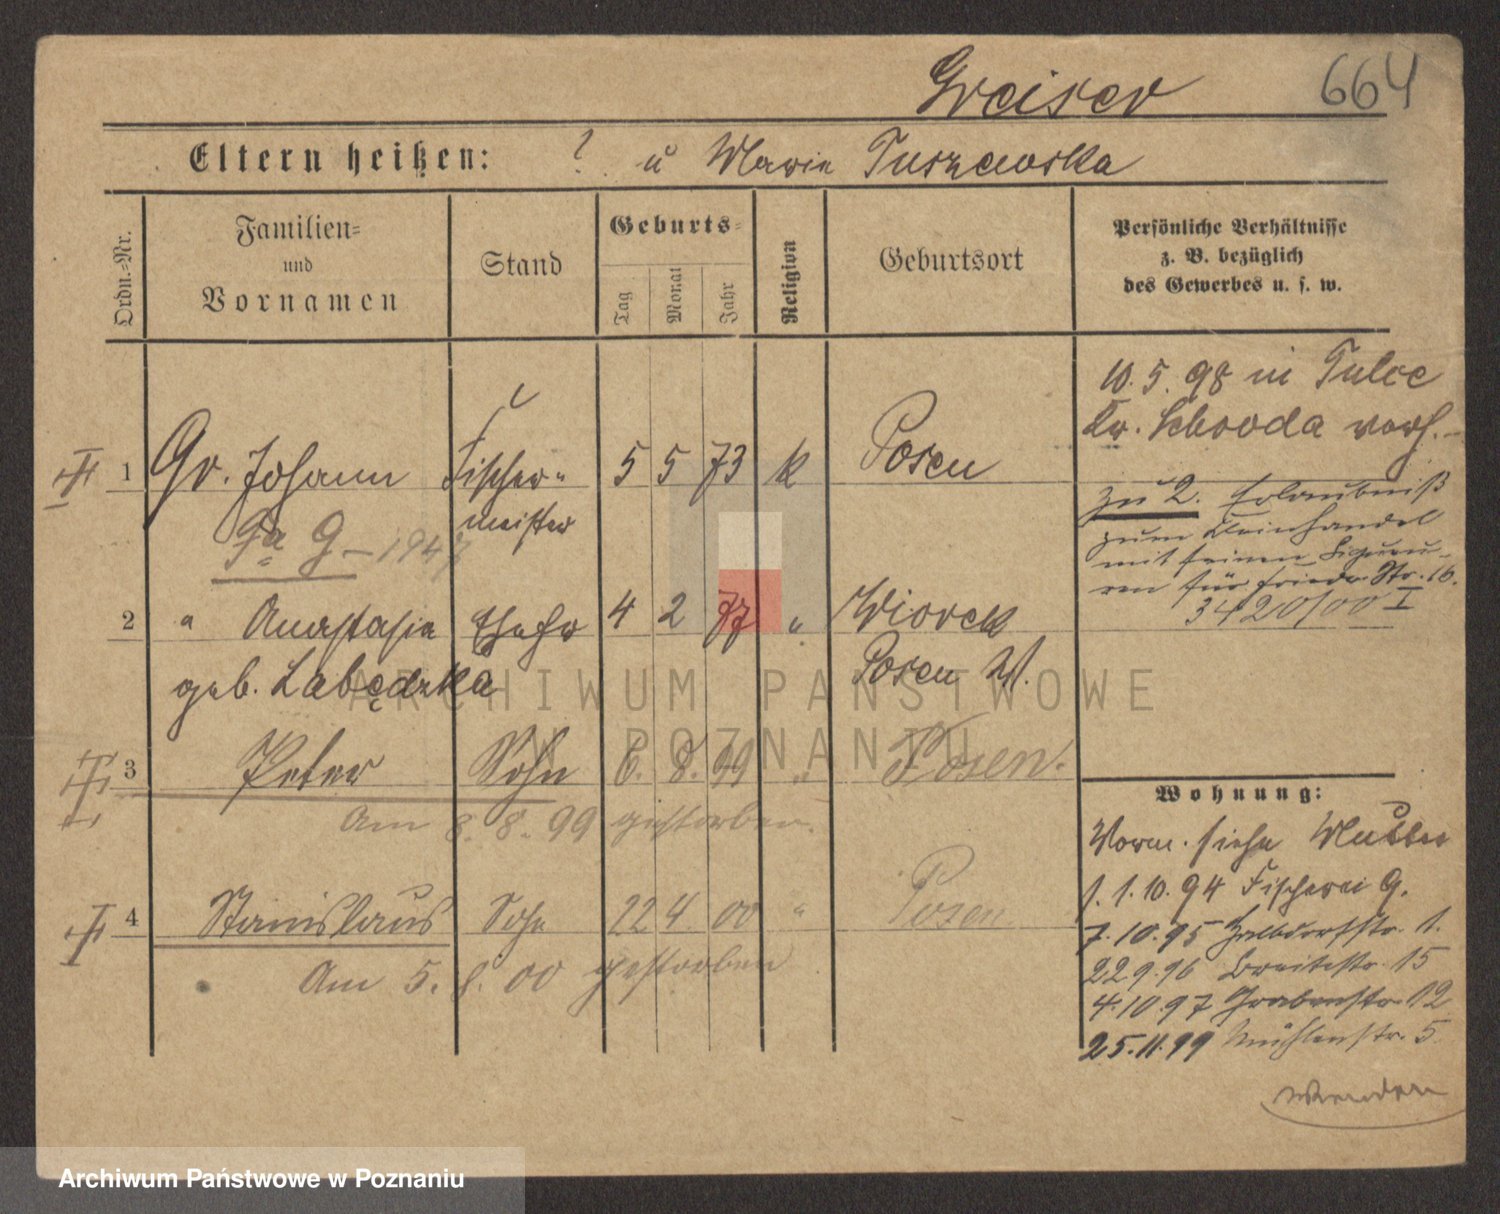 Greiser 664
Eltern heißen: ? u Marie Tuszewska
Ordn.-Nr.
Familien- und Vornamen
Stand
Geburts-
Tag Monat Jahr
Religion
Geburtsort
Persönliche Verhältnisse
z. B. bezüglich
des Gewerbes u. s. w.
1 Gr. Johann Fischer- 5 5 73 k Posen
meister
G – 1947
2 " Anastasia Ehefr 4 2 77 " Wiorek
geb. Labędzka Posen W.
3 Peter Sohn 6. 8. 99 " Posen.
Am 8. 8. 99 gestorben.
4 Stanislaus Sohn 22 4. 00 " Posen
Am 5. 8. 00 gestorben
10. 5. 98 in Tulce
Kr. Schroda verh.
zu 2. Erlaubniß
zum Kleinhandel
mit feinen Liqueu-
ren für Friedr. Str. 16.
3420/00 I
Wohnung:
Vorm. siehe Mutter
1. 1. 10. 94 Fischerei 9.
7. 10. 95 Halbdorfstr. 1.
22 9. 96 Breitestr. 15
4. 10. 97 Grabenstr. 12
25. 11. 99 Mühlenstr. 5.
Wenden
ARCHIWUM PAŃSTWOWE
W POZNANIU
Archiwum Państwowe w Poznaniu